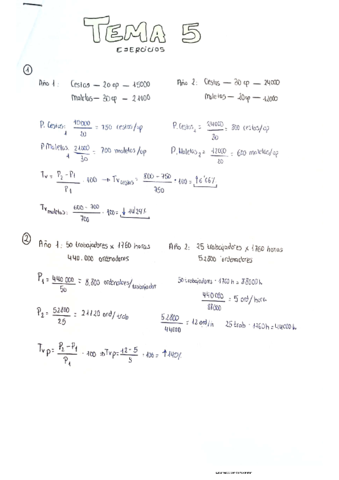 TEMA 5
EJERCICIOS
①
Año 1: Cestas — 20 op — 15000
Maletas — 30 op — 21000
Año 2: Cestas — 30 op — 24000
Maletas — 20 op — 12000
P. Cestas₁ = 15000/20 = 750 cestas/op
P. Cestas₂ = 24000/30 = 800 cestas/op
P. Maletas₁ = 21000/30 = 700 maletas/op
P. Maletas₂ = 12000/20 = 600 maletas/op
Tv = P₂ - P₁ / P₁ · 100 → Tv cestas = 800 - 750 / 750 · 100 =
Tv maletas: 600 - 700 / 700 · 100 =
②
Año 1: 50 trabajadores x 1760 horas
440.000 ordenadores
Año 2: 25 trabajadores x 1760 horas
52800 ordenadores
P₁ = 440000/50 = 8.800 ordenadores/trabajador
50 trabajadores · 1760 h = 88000 h
440000/88000 = 5 ord/hora
P₂ = 52800/25 = 2112 ord/trab
52800/44000 = 12 ord/h
25 trab · 1760 h = 44000 h
Tvp = P₂ - P₁ / P₁ · 100 → Tvp = 12 - 5 / 5 · 100 = ↑140%